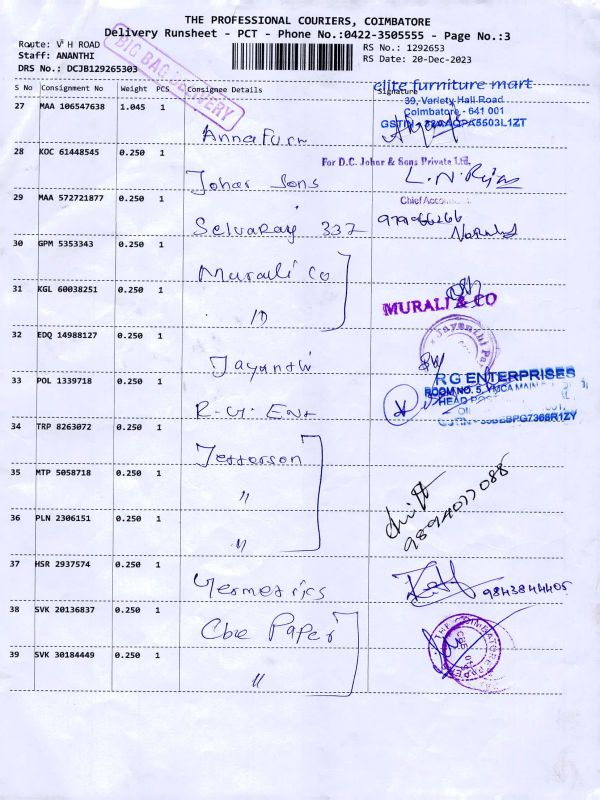 THE PROFESSIONAL COURIERS, COIMBATORE
Delivery Runsheet - PCT - Phone No.:0422-3505555 - Page No.:3
Route: V H ROAD
RS No.: 1292653
Staff: ANANTHI
RS Date: 20-Dec-2023
DRS No.: DCJB129265303
BIG BAG DELIVERY
S No Consignment No Weight PCS Consignee Details Signature
elite furniture mart
39, Variety Hall Road
Coimbatore - 641 001
27 MAA 106547638 1.045 1
Anna Furn
28 KOC 61448545 0.250 1
For D.C. Johar & Sons Private Ltd.
Johar Sons
29 MAA 572721877 0.250 1
Chief
Selvaraj 337
30 GPM 5353343 0.250 1
Murali Co
31 KGL 60038251 0.250 1
MURALI & CO
32 EDQ 14988127 0.250 1
Jayanthi
Jayanthi
33 POL 1339718 0.250 1
RG ENTERPRISES
ROOM NO. 5, YMCA MAIN
R.G. Ent
34 TRP 8263072 0.250 1
Jefferson
35 MTP 5058718 0.250 1
"
36 PLN 2306151 0.250 1
"
9894077088
37 HSR 2937574 0.250 1
9843844405
38 SVK 20136837 0.250 1
Cbe Paper
THE COIMBATORE PAPER
39 SVK 30184449 0.250 1
"